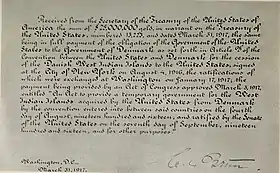 Received from the Secretary of the Treasury of the United States of
America the sum of $25,000,000 gold, in warrant on the Treasury of the
United States, numbered 13,225, and dated March 31, 1917, the same
being in full payment of the obligation of the Government of the United
States to the Government of Denmark as set forth in Article 5 of the
Convention between the United States and Denmark for the cession
of the Danish West Indian Islands to the United States, signed
at the City of New York on August 4, 1916, the ratifications of
which were exchanged at Washington on January 17, 1917; the
payment being provided by an Act of Congress approved March 3, 1917,
entitled "An Act to provide a temporary government for the West
Indian Islands acquired by the United States from Denmark
by the convention entered into between said countries on the fourth
day of August, nineteen hundred and sixteen, and ratified by the Senate
of the United States on the seventh day of September, nineteen
hundred and sixteen, and for other purposes".
Washington, D.C.,
March 31, 1917.